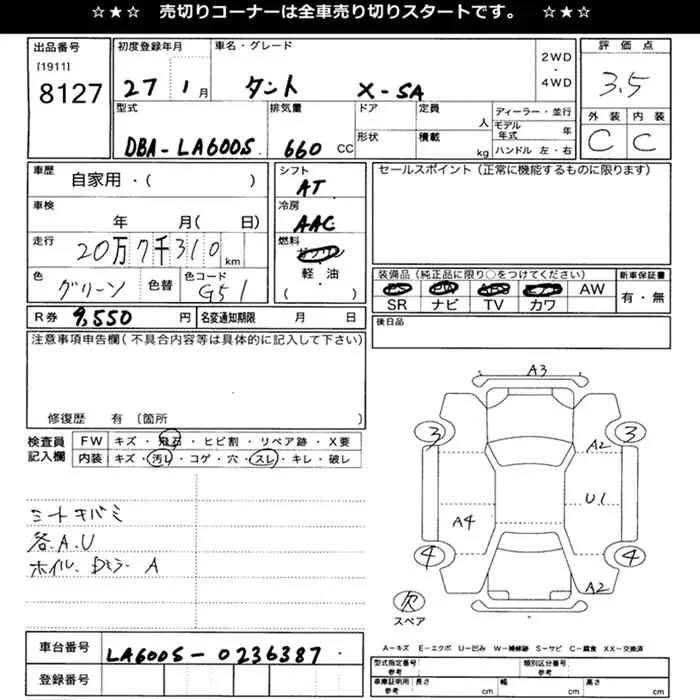 ☆★☆ 売切りコーナーは全車売り切りスタートです。 ☆★☆
出品番号
[1911]
8127
初度登録年月
27 1月
車名・グレード
タント X-SA
2WD
・
4WD
評価点
3.5
外装 内装
C C
型式
DBA-LA600S
排気量
660 CC
ドア
形状
定員
人
積載
kg
ディーラー・並行
モデル年式 年
ハンドル 左・右
車歴
自家用・( )
車検
年 月( 日)
走行
20万7千310km
色
グリーン
色替
色コード
G51
シフト
AT
冷房
AAC
燃料
軽・油
( )
セールスポイント(正常に機能するものに限ります)
装備品(純正品に限り○をつけてください)
PS PW ABS エアB AW
SR ナビ TV カワ
新車保証書
有・無
R券 9,550 円
名変通知期限 月 日
後日品
注意事項申告欄(不具合内容等は具体的に記入して下さい)
修復歴 有 〔箇所 〕
検査員
記入欄
FW キズ・飛石・ヒビ割・リペア跡・X要
内装 キズ・汚レ・コゲ・穴・スレ・キレ・破レ
シートキバミ
各.A.U
ホイル、Dミラー A
A3
3 3
A2
U1
A4
4 4
A2
欠
スペア
A-キズ E-エクボ U-凹み W-補修跡 S-サビ C-腐食 XX-交換済
車台番号
LA600S-0236387
登録番号
型式指定番号
参考
類別区分番号
参考
車庫証明用
参考
長さ cm
幅 cm
高さ cm